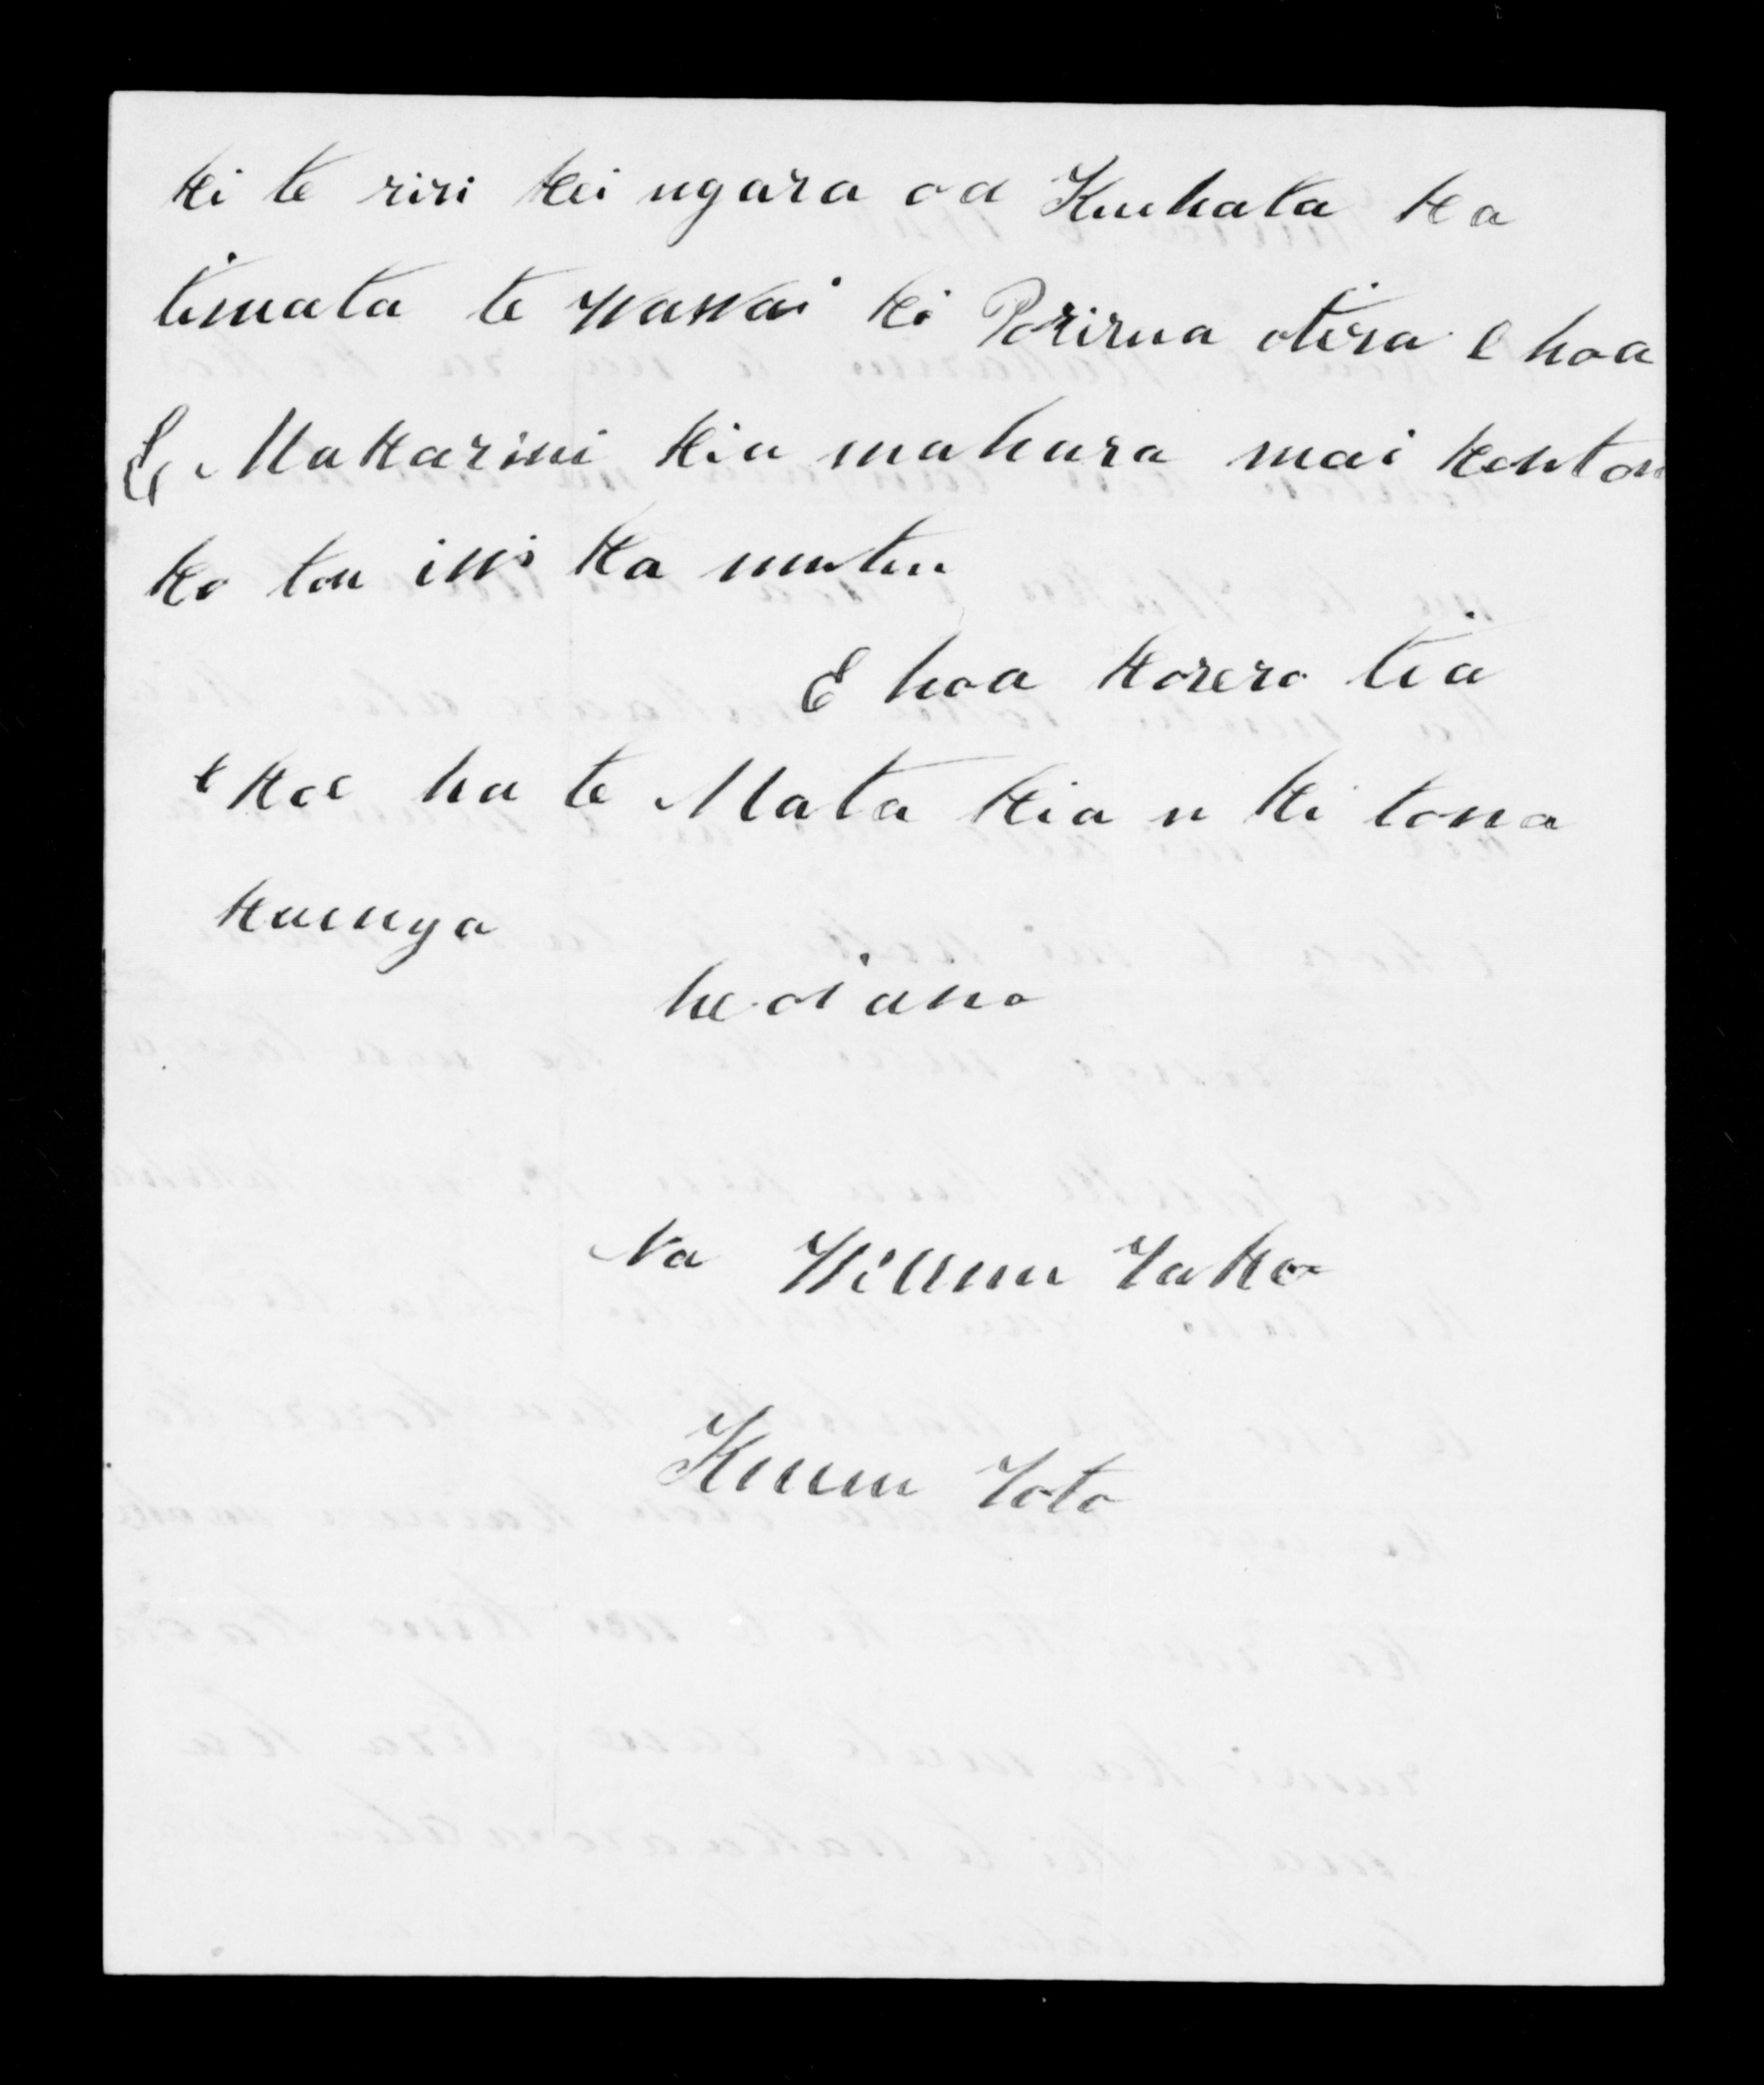 ki te riri kei ngara oa Kuehata ka
timata te wawai ki Porirua otira e hoa
E Makarini kia mahara mai koutou
ko tou iwi ka mutu
E hoa korero tia
e koe ha te Mata kia u ki tona
kuenga
heoi ano
Na Wiremu Tako
Kumu Toto